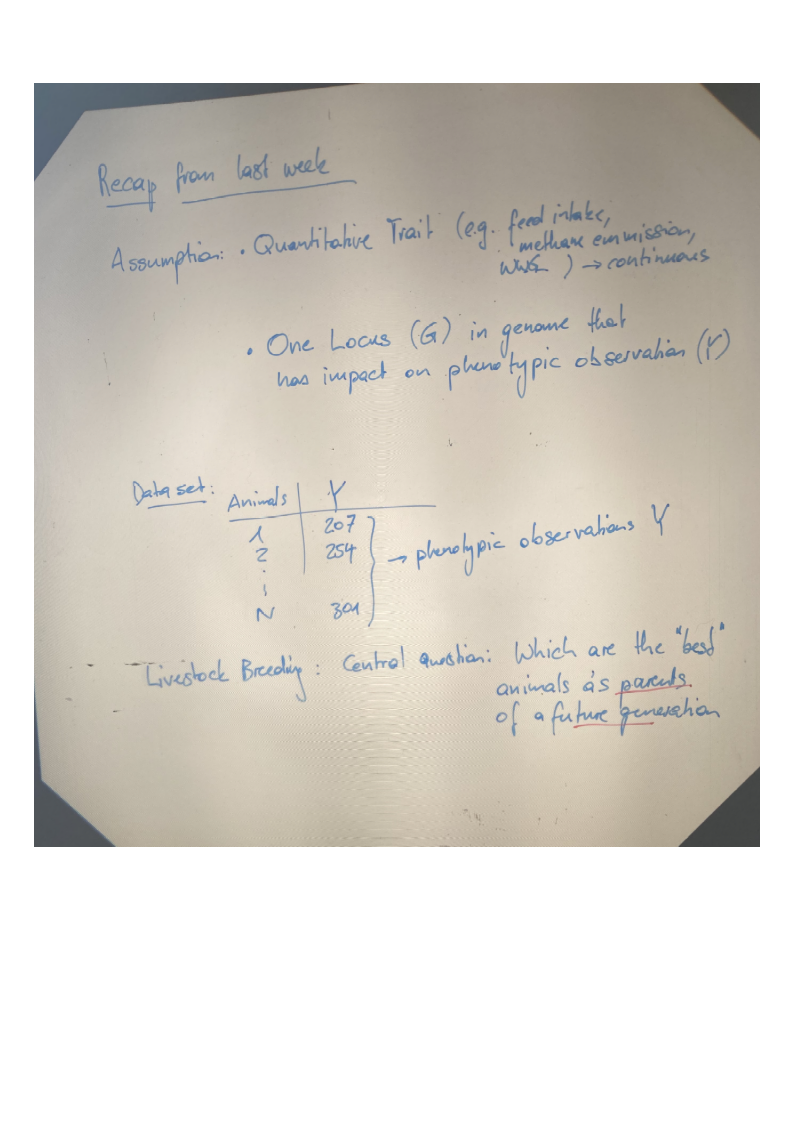 Recap from last week
Assumption: • Quantitative Trait (e.g. feed intake,
methane emmission,
) → continuous
• One Locus (G) in genome that
has impact on phenotypic observation (Y)
Data set: Animals Y
1 207
2 254
N 301
→ phenotypic observations Y
Livestock Breeding: Central question: Which are the "best"
animals as parents
of a future generation